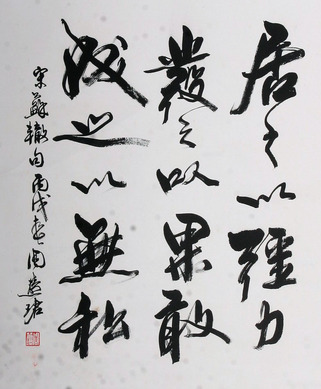 居之以彊力
發之以果敢
成之以無私
宋蘇轍句丙戌春周慧珺